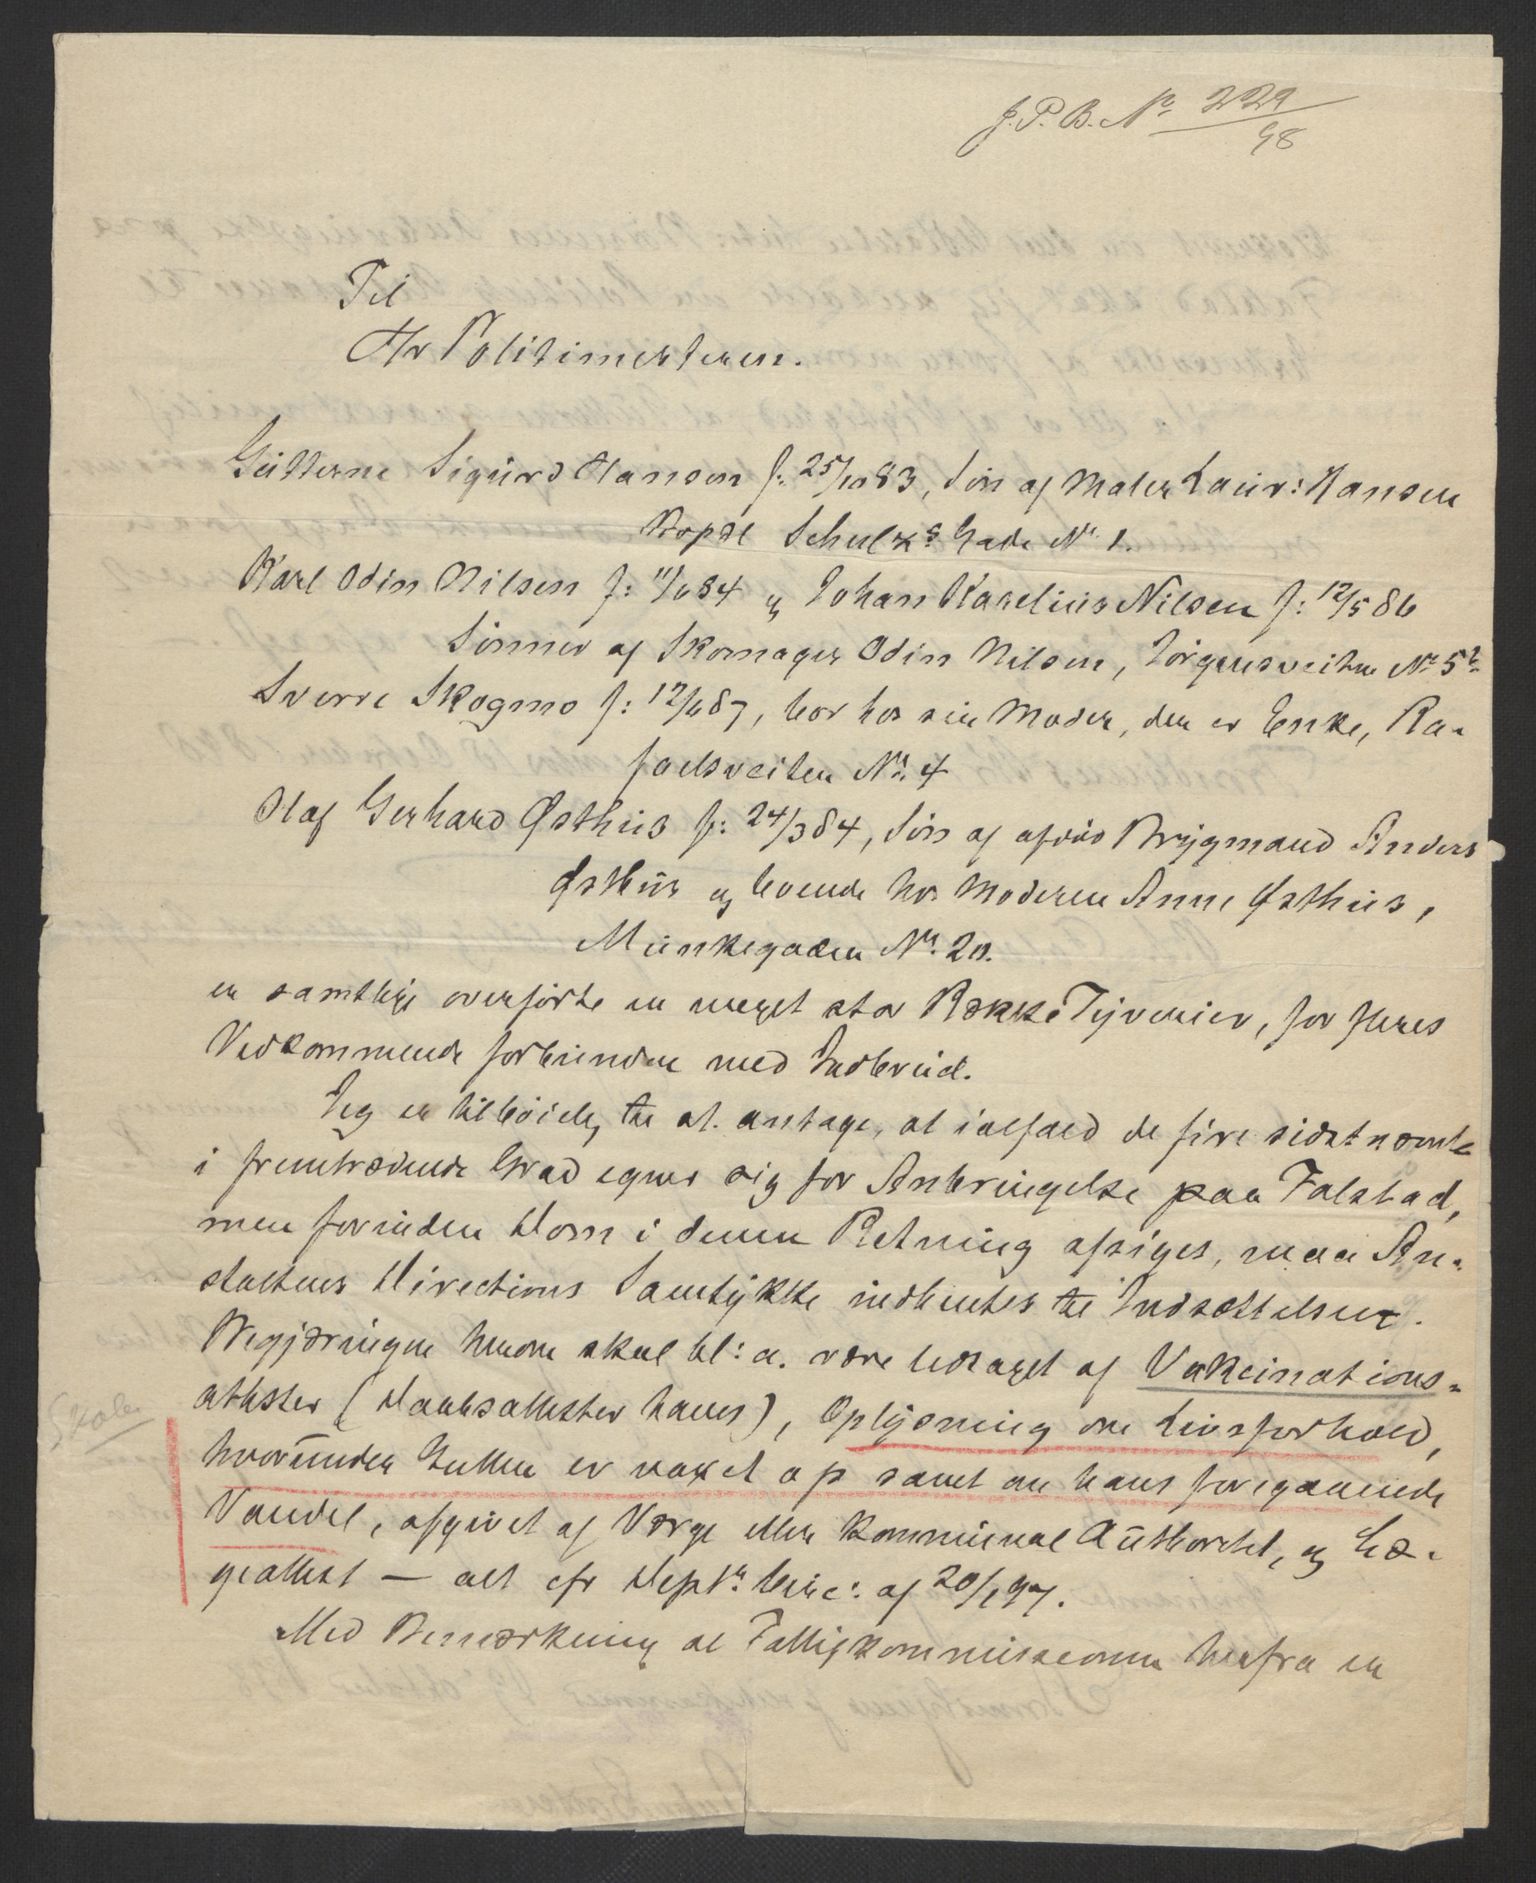 J. P. B. No 229
98
Til
Hr Politimesteren.
Gutterne Sigurd Hansen f: 25/10 83, Søn af Maler Laur: Hansen
Bopæl Schulzs Gade No 1.
Karl Odin Nilsen f: 11/6 84 og Johan Karelius Nilsen f: 12/5 86
Sønner af Skomager Odin Nilsen, Jørgensveiten No 5b
Sverre Skogmo f: 12/6 87, bor hos sin Moder, der er Enke, Ra-
faelsveiten No. 4
Olaf Gerhard Østhus f: 24/3 84, Søn af afdød Brygmand Anders
Østhus og boende hos Moderen Anne Østhus,
Munkegaden No. 20.
er samtlige overførte en meget stor Række Tyverier, for fleres
Vedkommende forbunden med Indbrud.
Jeg er tilbøielig til at antage, at ialfald de fire sidstnævnte
i fremtrædende Grad egner sig for Anbringelse paa Falstad,
men forinden Dom i denne Retning afsiges, maa An-
staltens Directions Samtykke indhentes til Indsættelsen.
Begjæringen herom skal bl: a. være ledsaget af Vakcinations-
attester (Daabsattester haves), Oplysning om Livsforhold,
hvorunder Gutten er voxet op samt om hans foregaaende
Vandel, afgivet af Værge eller kommunal Authoritet, og Læ-
geattest — alt cfr Deptn Circ: af 20/1 97.
Skole
Med Bemærkning at Fattigkommissionen herfra er